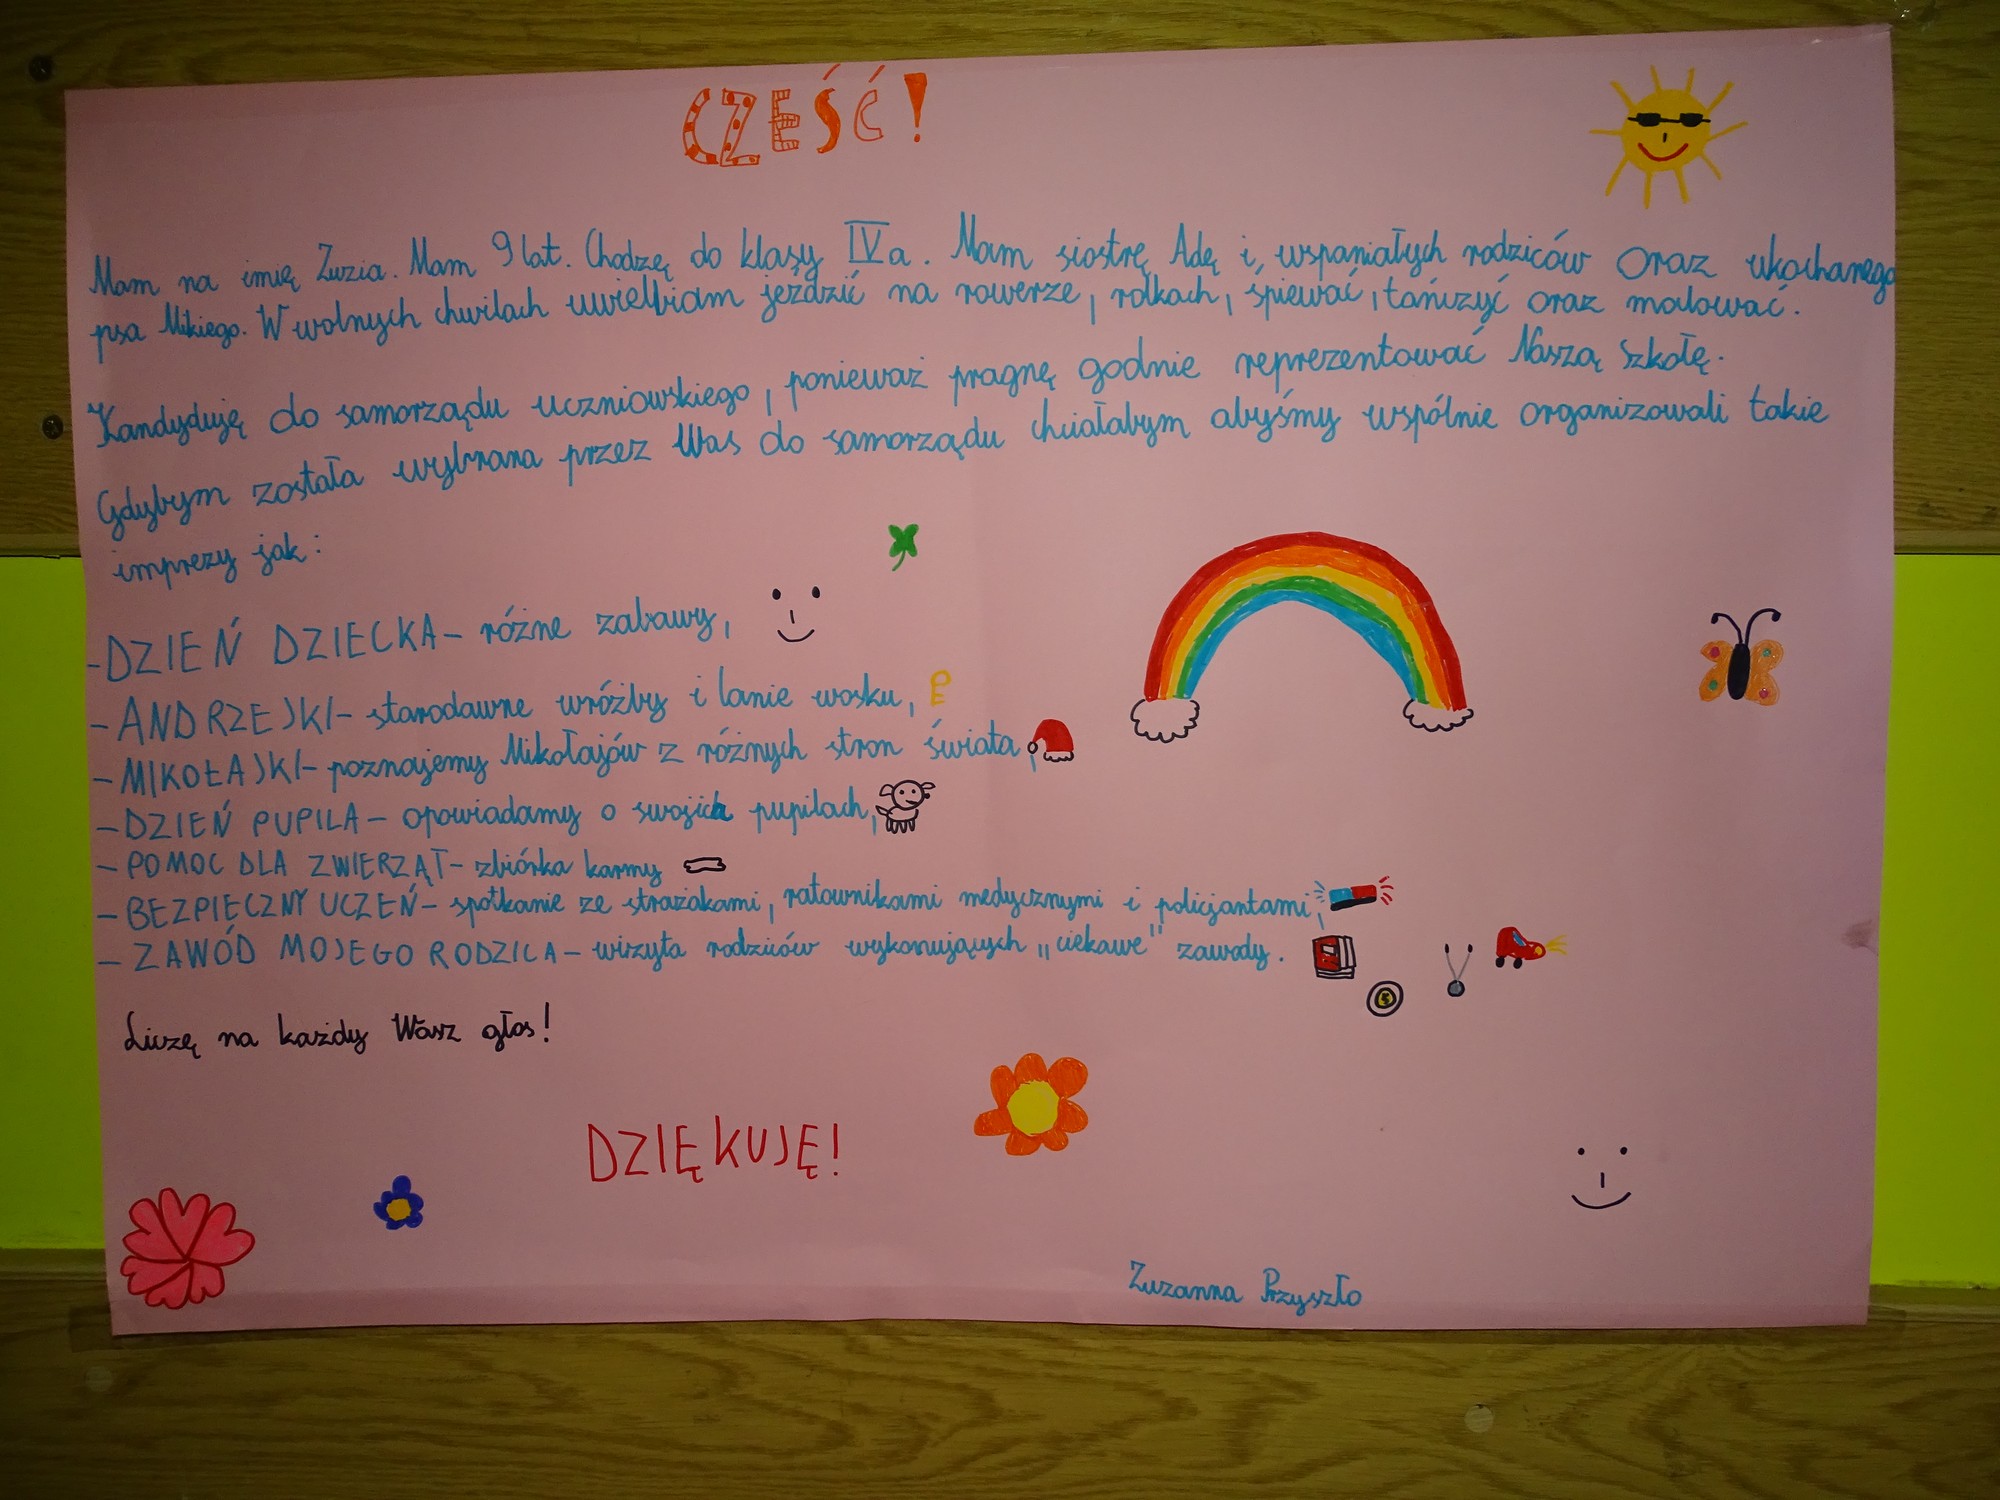 CZEŚĆ!
Mam na imię Zuzia. Mam 9 lat. Chodzę do klasy IVa. Mam siostrę Adę i wspaniałych rodziców oraz ukochanego
psa Mikiego. W wolnych chwilach uwielbiam jeździć na rowerze, rolkach, śpiewać, tańczyć oraz malować.
Kandyduję do samorządu uczniowskiego, ponieważ pragnę godnie reprezentować Naszą Szkołę.
Gdybym została wybrana przez Was do samorządu chciałabym abyśmy wspólnie organizowali takie
imprezy jak:
-DZIEŃ DZIECKA- różne zabawy,
-ANDRZEJKI- starodawne wróżby i lanie wosku,
-MIKOŁAJKI- poznajemy Mikołajów z różnych stron świata,
-DZIEŃ PUPILA- opowiadamy o swojich pupilach,
-POMOC DLA ZWIERZĄT- zbiórka karmy
-BEZPIECZNY UCZEŃ- spotkanie ze strażakami, ratownikami medycznymi i policjantami,
-ZAWÓD MOJEGO RODZICA- wizyta rodziców wykonujących „ciekawe" zawody.
Liczę na każdy Wasz głos!
DZIĘKUJĘ!
Zuzanna Przyszło